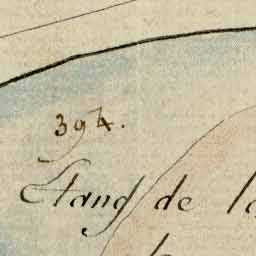 394.
Etang de la